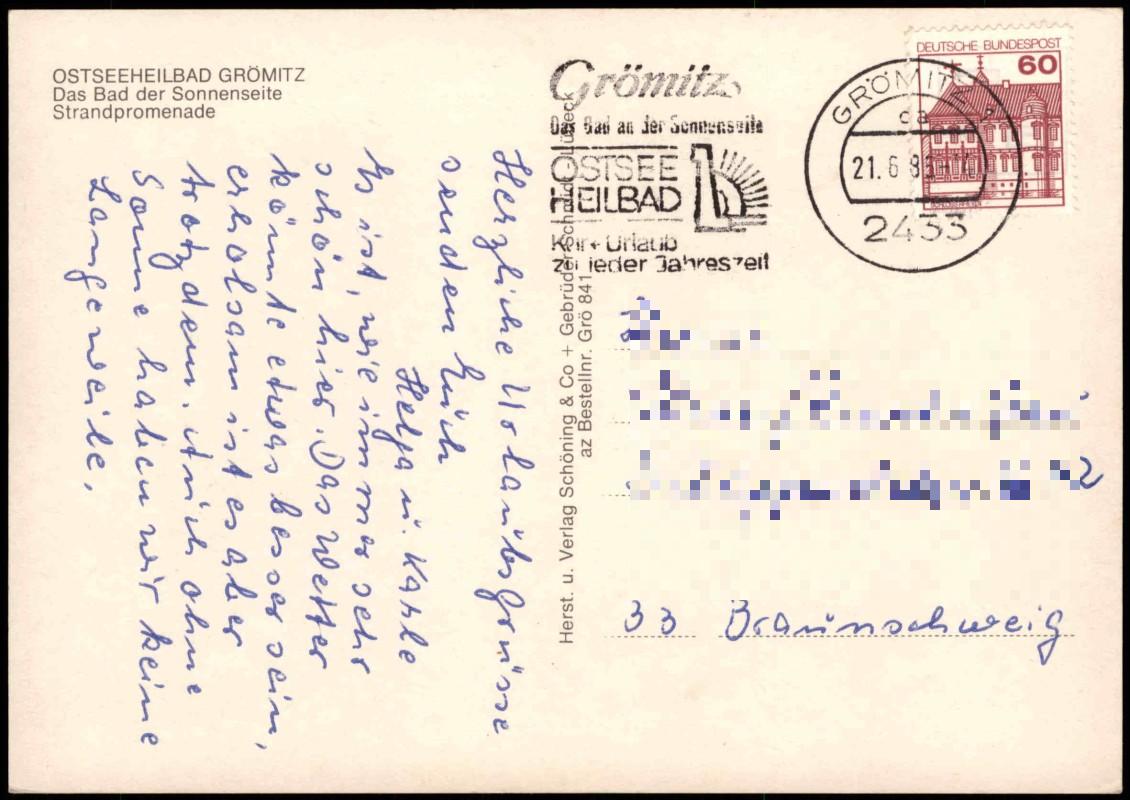 OSTSEEHEILBAD GRÖMITZ
Das Bad der Sonnenseite
Strandpromenade
Grömitz
Das Bad an der Sonnenseite
OSTSEE
HEILBAD
Kur + Urlaub
zu jeder Jahreszeit
GRÖMITZ
da
21.6.8
2433
DEUTSCHE BUNDESPOST
60
Herzliche Urlaubsgrüsse
senden Euch
Helga u. Karle
Es ist, wie immer sehr
schön hier. Das Wetter
könnte etwas besser sein,
erholsam ist es aber
trotzdem. Auch ohne
Sonne haben wir keine
Langeweile.
Herst. u. Verlag Schöning & Co + Gebrüder Schmidt, Lübeck
az Bestellnr. Grö 841
2
33 Braunschweig